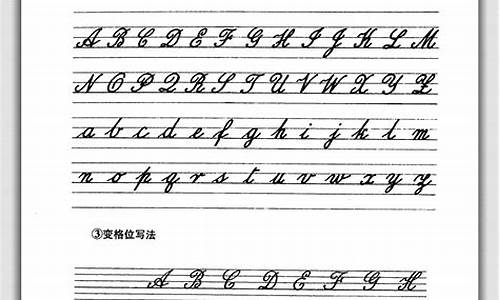 A B C D E F G H I J K L M
N O P Q R S T U V W X Y Z
a b c d e f g h i j k l m
n o p q r s t u v w x y z
③变格位写法
A B C D E F G H